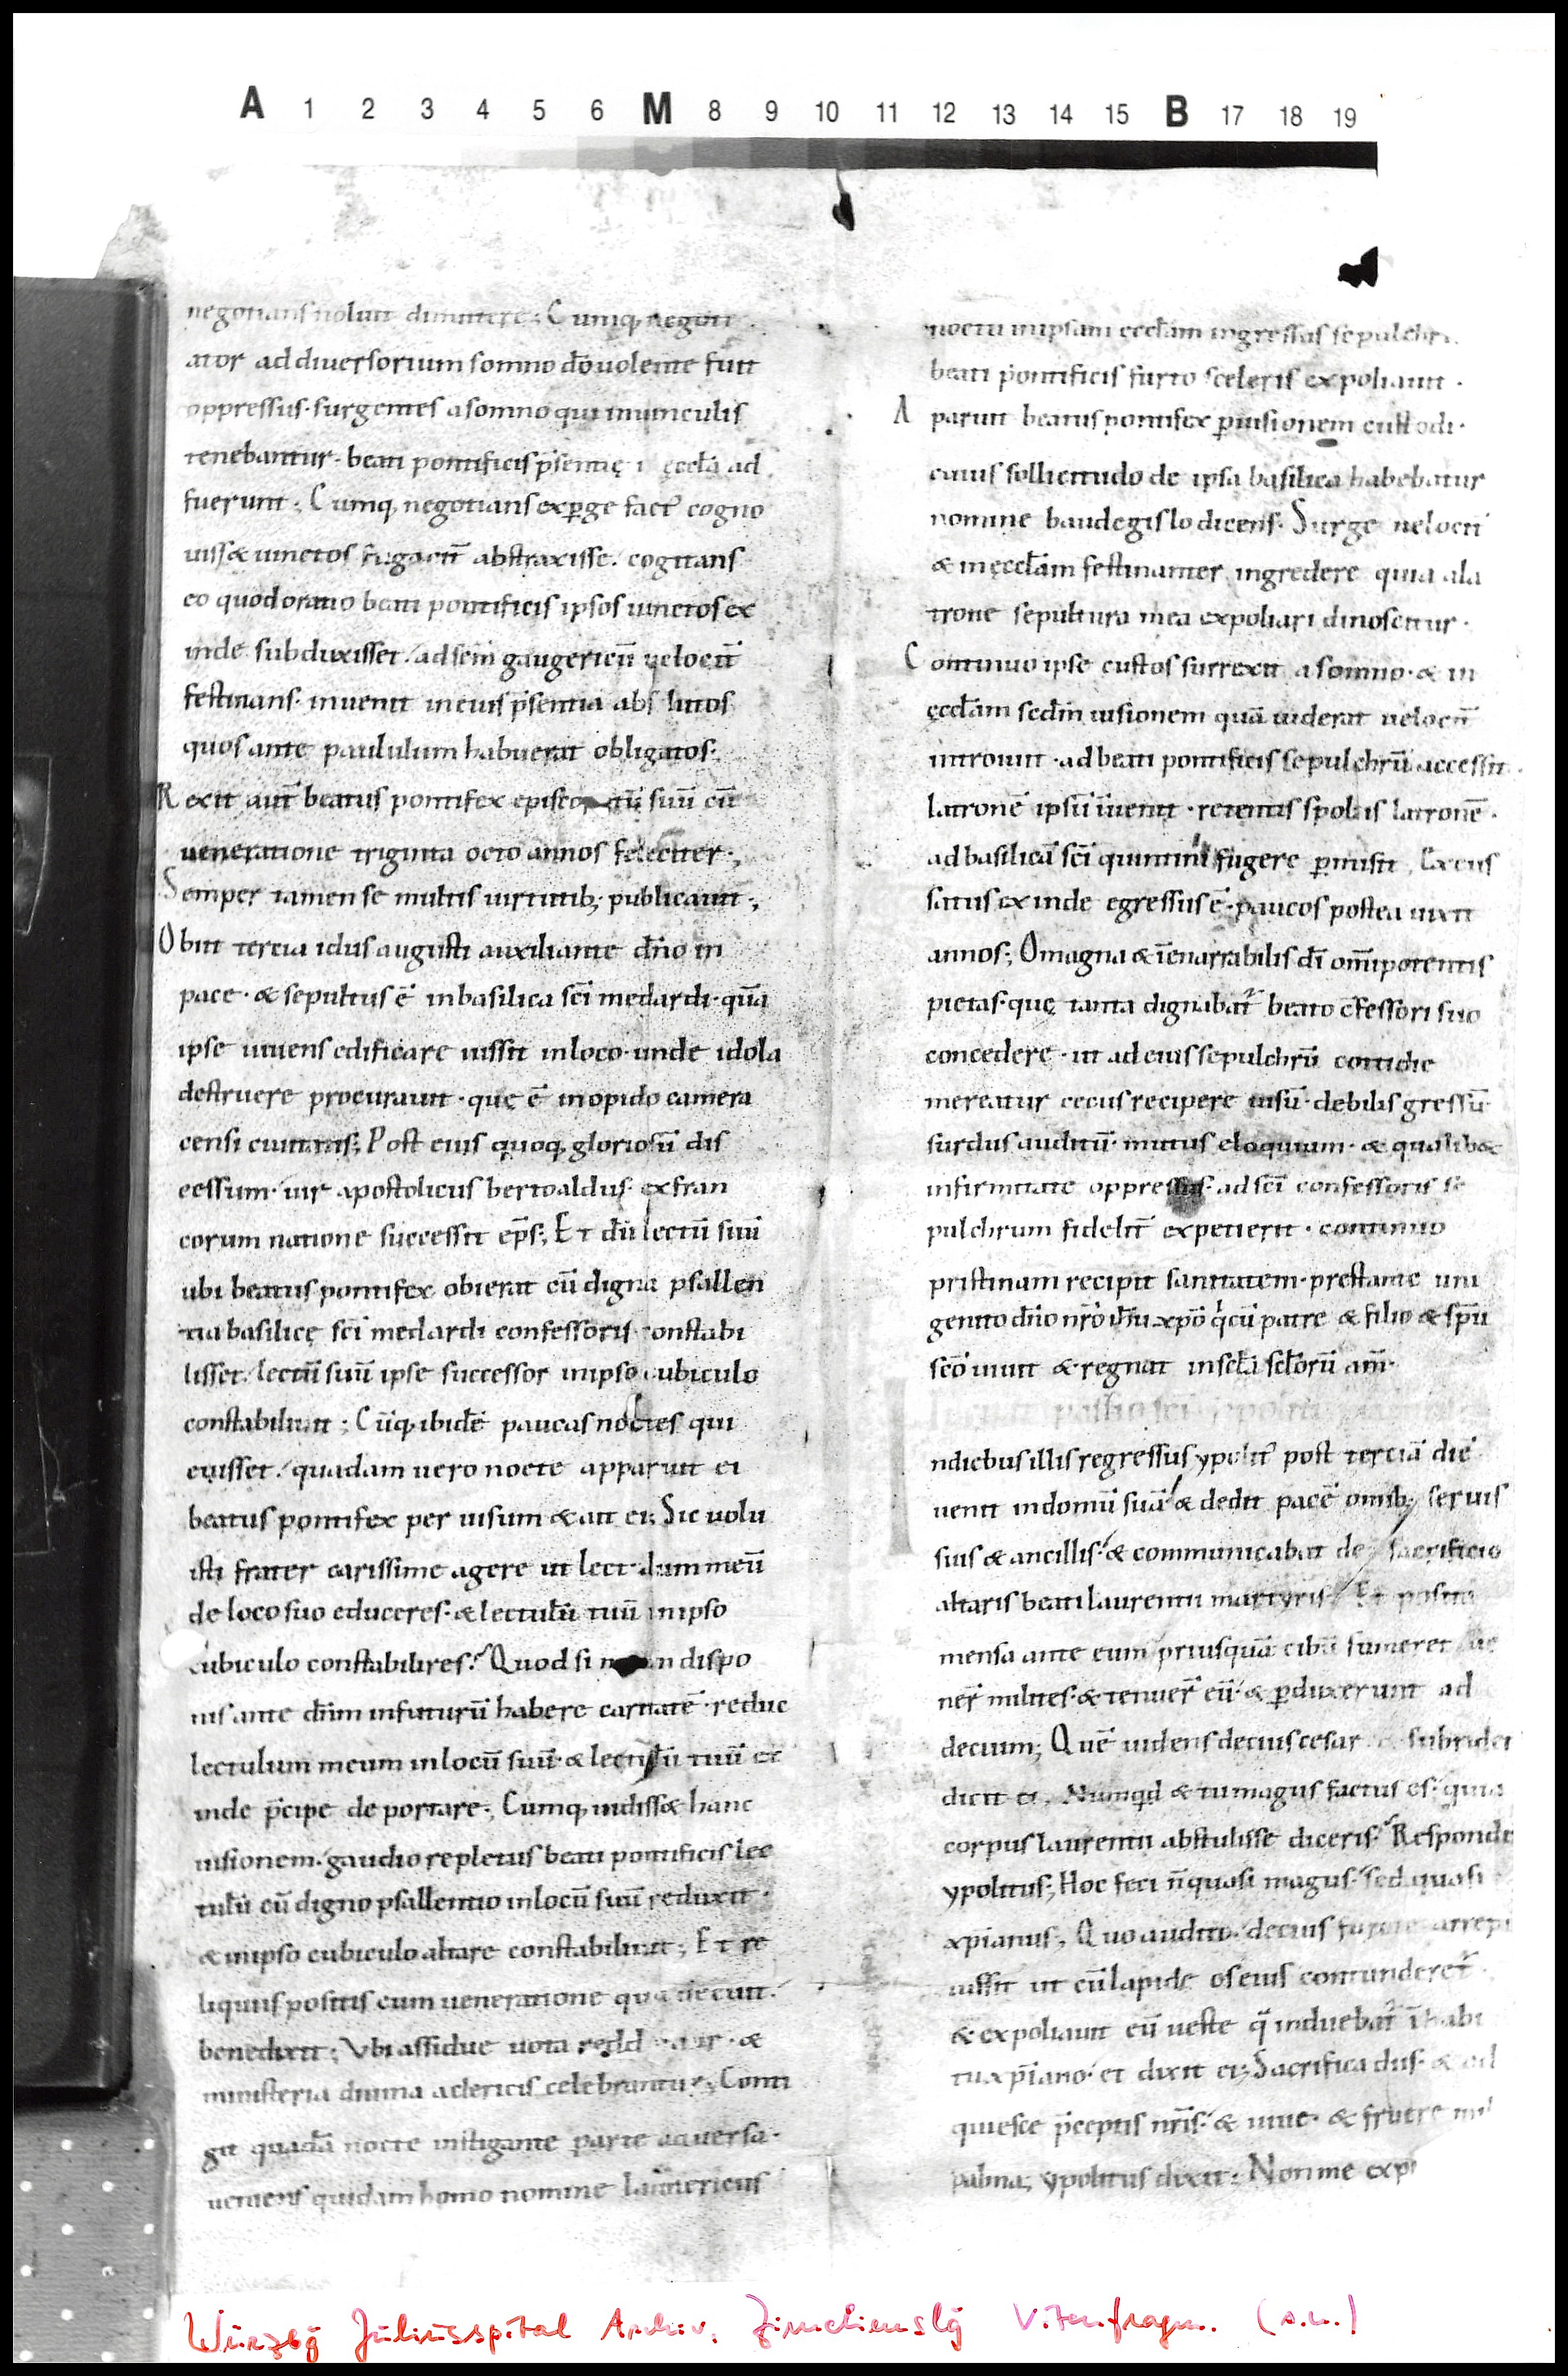 A 1 2 3 4 5 6 M 8 9 10 11 12 13 14 15 B 17 18 19
negotians noluit dimittere; Cumq; negoti
ator ad diuersorium somno dō uolente fuit
oppressus· surgentes a somno qui in uinculis
tenebantur· beati pontificis p̄sentię ęcclā ad
fuerunt; Cumq; negotians exꝑgefact᾽ cogno
uiss& uinctos fugacit̄ abstraxisse· cogitans
eo quod oratio beati pontificis ipsos uinctos ex
inde subduxisset· ad sc̄m gaugericū uelocit̄
festinans· inuenit in eius p̄sentia abs lutos
quos ante paululum habuerat obligatos·
Rexit aut̄ beatus pontifex suū cū
ueneratione triginta octo annos feleciter;
Semper tamen se multis uirtutib; publicauit;
Obiit tercia idus augusti auxiliante dn̄o in
pace· & sepultus ē in basilica sc̄i medardi· quā
ipse uiuens edificare iussit in loco· unde idola
destruere procurauit· quę ē in opido camera
censi ciuitatis; Post eius quoq; gloriosū dis
cessum· uir apostolicus bertoaldus· ex fran
corum natione successit ep̄s; Et dū lectū suū
ubi beatus pontifex obierat cū digna psallen
tia basilicę sc̄i medardi confessoris constabi
lisset· lectū suū ipse successor in ipso cubiculo
constabiliuit; Cūq; ibidē paucas noctes qui
euisset· quadam uero nocte apparuit ei
beatus pontifex per uisum & ait ei; Sic uolu
isti frater carissime agere ut lect lum meū
de loco suo educeres· & lectulū tuū in ipso
cubiculo constabilires? Quod si dispo
nis ante dn̄m in futurū habere caritatē· reduc
lectulum meum in locū suū· & lectulū tuū ex
inde p̄cipe deportare· Cumq; uidiss& hanc
uisionem· gaudio repletus beati pontificis lec
tulū cū digno psallentio in locū suū reduxit·
& in ipso cubiculo altare constabiliuit; Et re
liquiis positis cum ueneratione benedixit; Vbi assidue uota · &
ministeria diuina a clericis celebrantur; Conti
git quadā nocte instigante parte aduersa·
ueniens quidam homo nomine
noctu in ipsam ęccl̄am ingressus sepulchrū
beati pontificis furto sceleris expoliauit·
Aparuit beatus pontifex ꝑ uisionem custodi·
cuius sollicitudo de ipsa basilica habebatur
nomine baudegislo dicens· Surge uelocit̄
& in ęccl̄am festinanter ingredere quia a la
trone sepultura mea expoliari dinoscitur·
Continuo ipse custos surrexit a somno· & in
ęccl̄am sedm̄ uisionem quā uiderat uelocit̄
introiuit· ad beati pontificis sepulchrū accessit·
latronē ipsū īuenit· retentis spoliis latronē·
ad basilicā sc̄i quintini fugere ꝑmisit, Excus
satus ex inde egressus ē· paucos postea uixit
annos; O magna & īenarrabilis dī om̄ipotentis
pietas· quę tanta dignabat᾽ beato c̄fessori suo
concedere· ut ad eius sepulchrū cottidie
mereatur cecus recipere uisū· debilis gressū·
surdus auditū· mutus eloquium· & qualib&
infirmitate oppressus· ad sc̄i confessoris se
pulchrum fidelit̄ expetierit· continuo
pristinam recipit sanitatem· prestante uni
genito dn̄o nr̄o ih̄u xp̄o q̇ cū patre & filio & sp̄u
sc̄o uiuit & regnat in scl̄a scl̄orū am̄·
passio sc̄i
Indiebus illis regressus ypolit᾽ post terciā diē
uenit in domū suā· & dedit pacē omnib; seruis
suis & ancillis· & communicabat de sacrificio
altaris beati laurentii martyris· Et posita
mensa ante eum priusquā cibū sumeret ue
ner̄ milites· & tenuer̄ eū· & ꝑduxerunt ad
decium; Quē uidens decius cesar subrider
dicit ei, Numqd & tu magus factus es· quia
corpus laurentii abstulisse diceris? Responde
ypolitus; Hoc feci n̄ quasi magus· sed quasi
xp̄ianus, Quo audito· decius furore arrep
iussit ut cū lapide os eius contunderet᾽·
& expoliauit eū ueste q̄ induebat᾽ ī habi
tu xp̄iano· et dixit ei; Sacrifica diis· & ad
quiesce p̄ceptis nr̄is· & uiue· & fruere
palma; ypolitus dixit; Nonne
Würzbg Juliusspital Archiv, Vitenfragm. (s.n.)